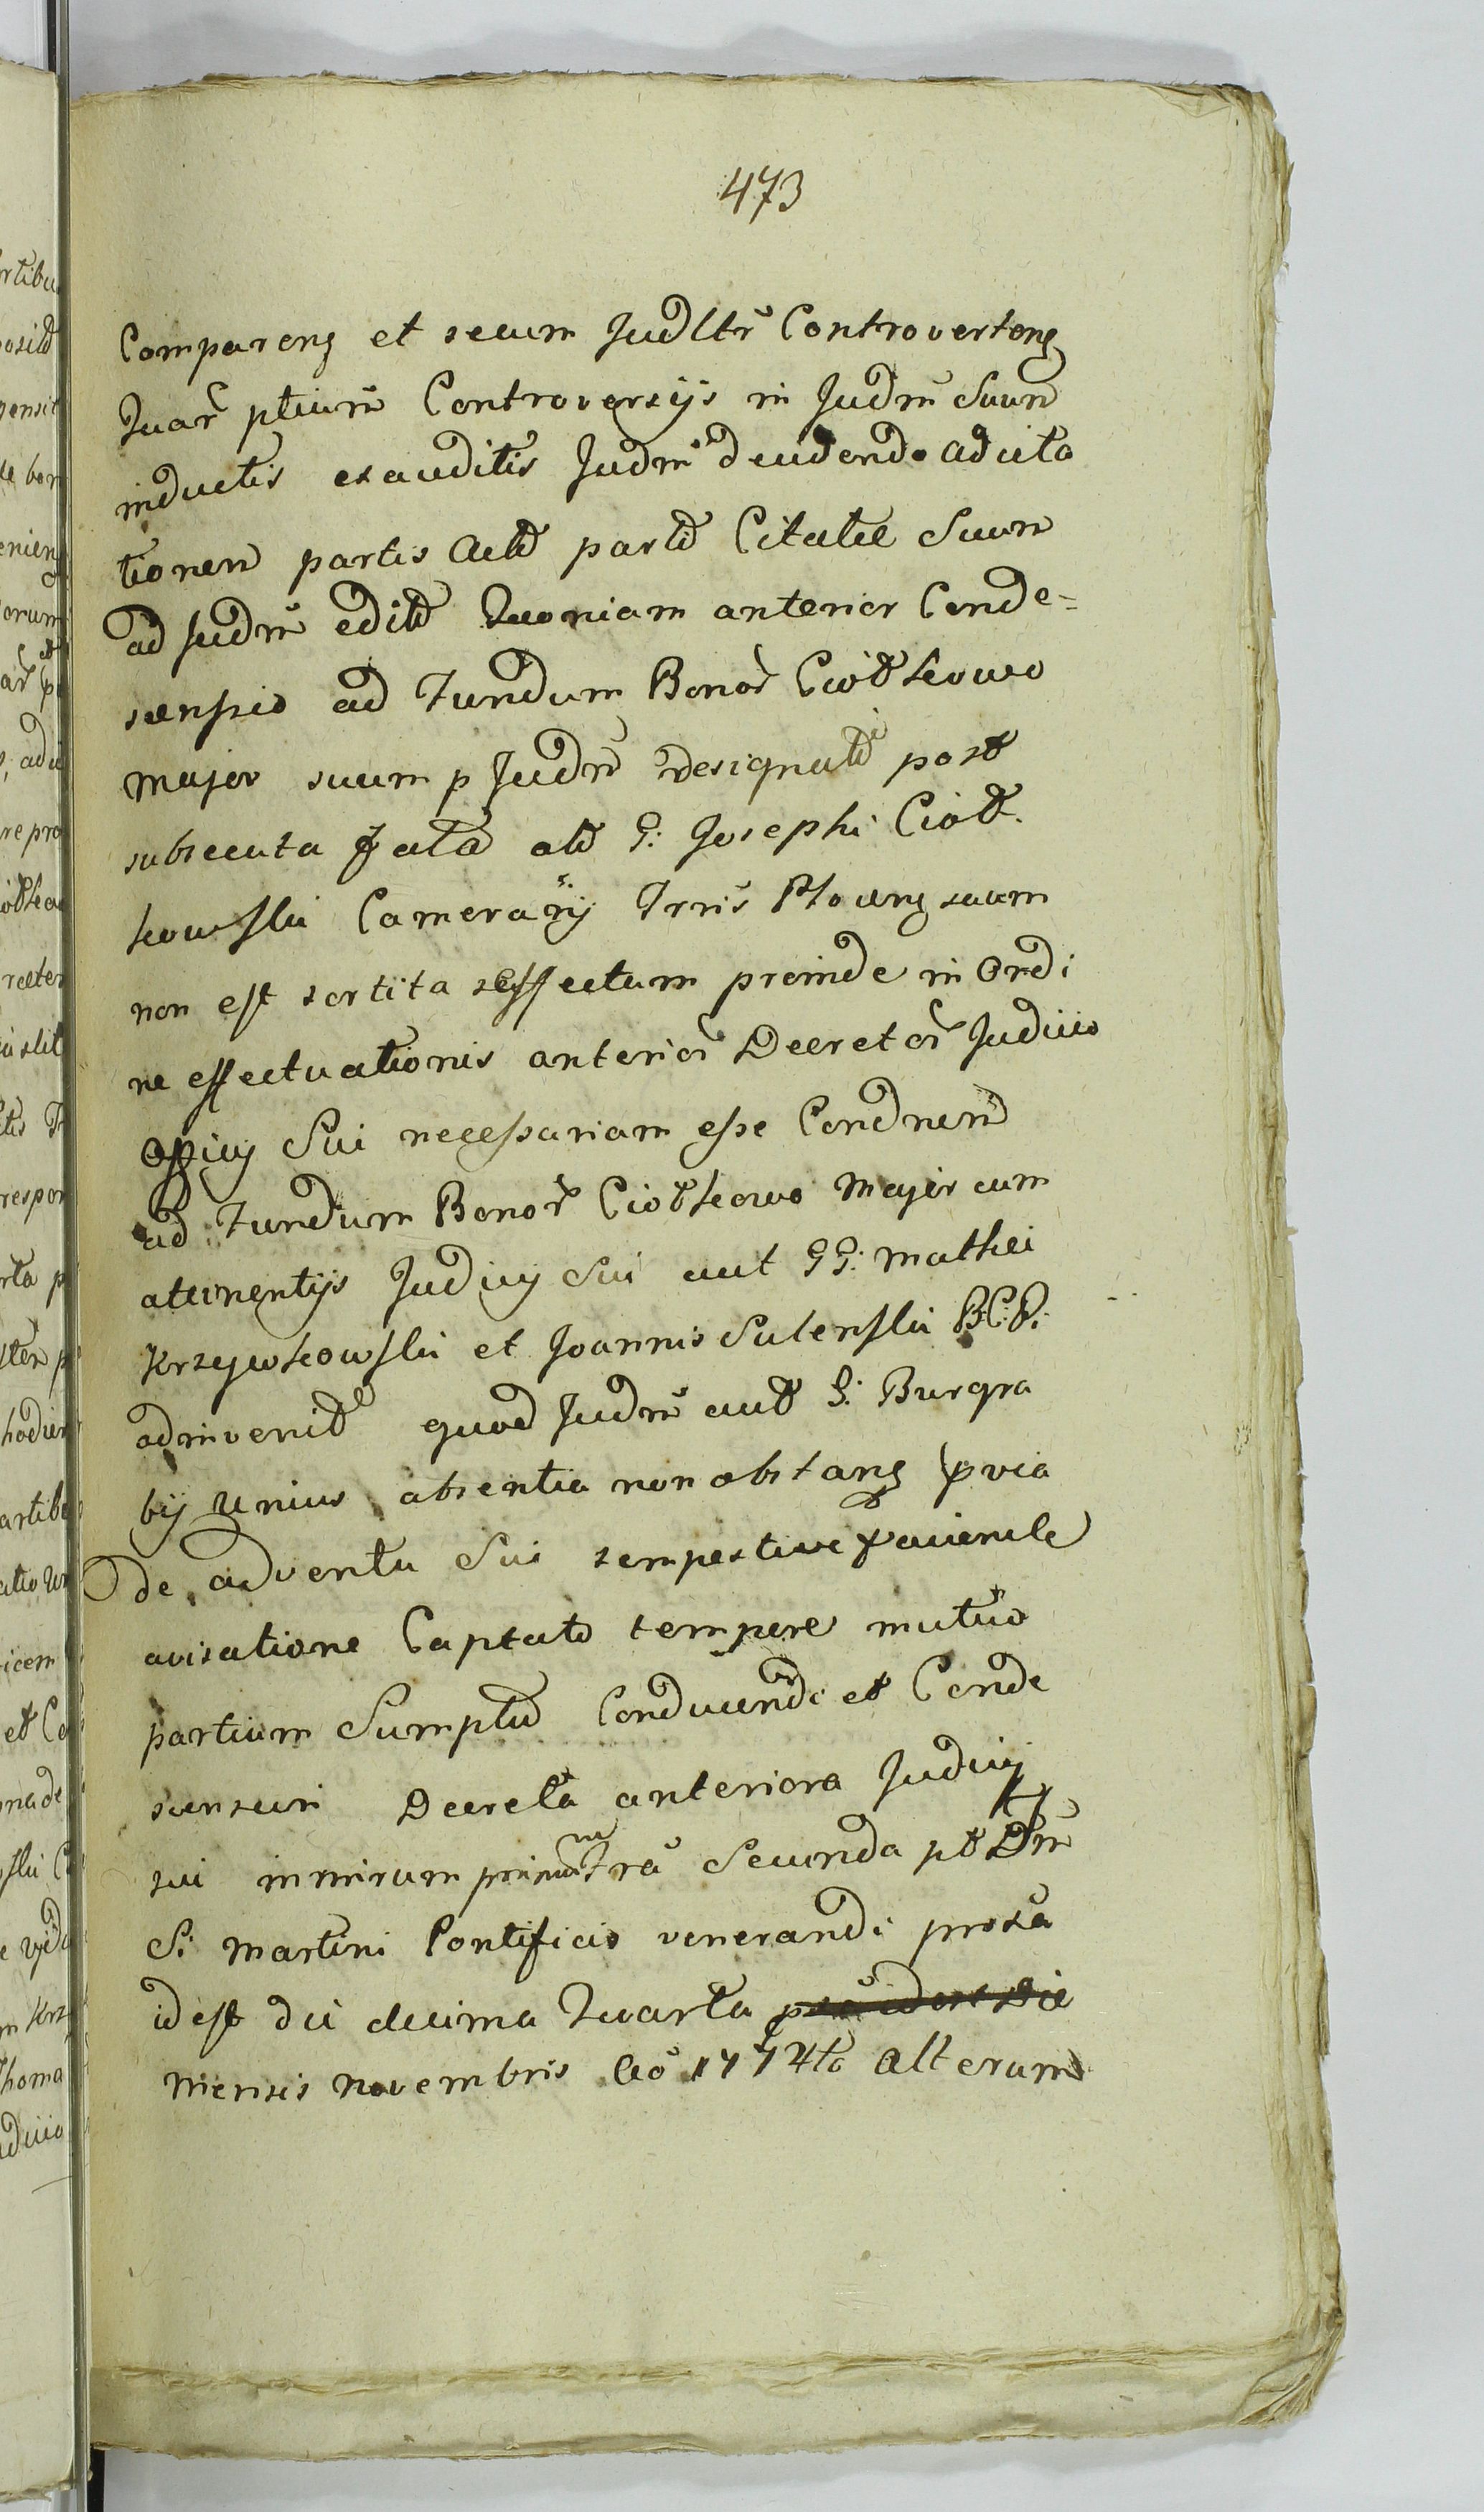 473
Compareng et secum Judltr Controverteng
Quar ptium Controversijs in Judm Suum
inductis exauditis Judm decidendo ad cita
tionem partis Act parte Citatæ Suum
ad Judm edit Quoniam anterior Conde=
scensio ad Fundum Bonor Ciotkowo
major suum p Judm designat post
subsecuta fata olt G: Josephi Ciot
kowski Camerarij Trris Ploceng suum
non est sortita effectum proinde in Ordi
ne effectuationis anterior Decretor Judicio
Officij Sui necessariam esse Condnem
ad Fundum Bonor Ciotkowo Major cum
attinentijs Judicij Sui aut GG: Mathei
Krzywkowski et Joannis Sulenski B.C.P.
adinvenit quod Judm aut G: Burgra
bij unius absentia non obstang pvia
de adventu Sui tempestive facienda
avisatione Captato tempore mutuo
partium Sumptu Conducendi et Conde
scensuri Decreta anteriora Judicij
sui inmirum Secunda pt Dm
S. Martini Pontificis venerandi proxa
id est die decima Quarta
Mensis Novembris Ao 1774to alterum